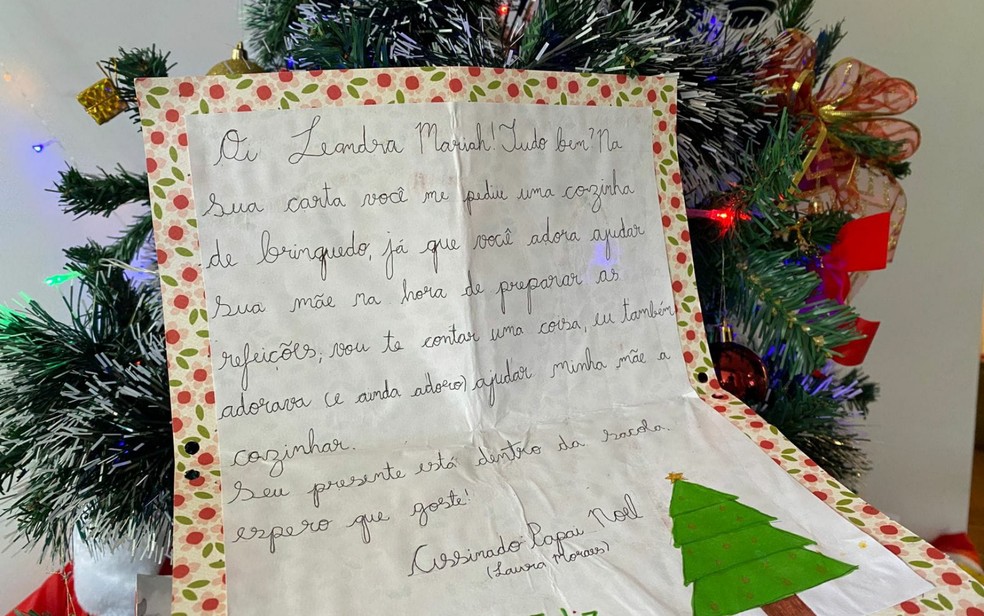 Oi Leandra Mariah! Tudo bem? Na
sua carta você me pediu uma cozinha
de brinquedo, já que você adora ajudar
sua mãe na hora de preparar as
refeições, vou te contar uma coisa, eu também
adorava (e ainda adoro) ajudar minha mãe a
cozinhar.
Seu presente está dentro da sacola.
espero que goste!
Assinado Papai Noel
(Laura Moraes)